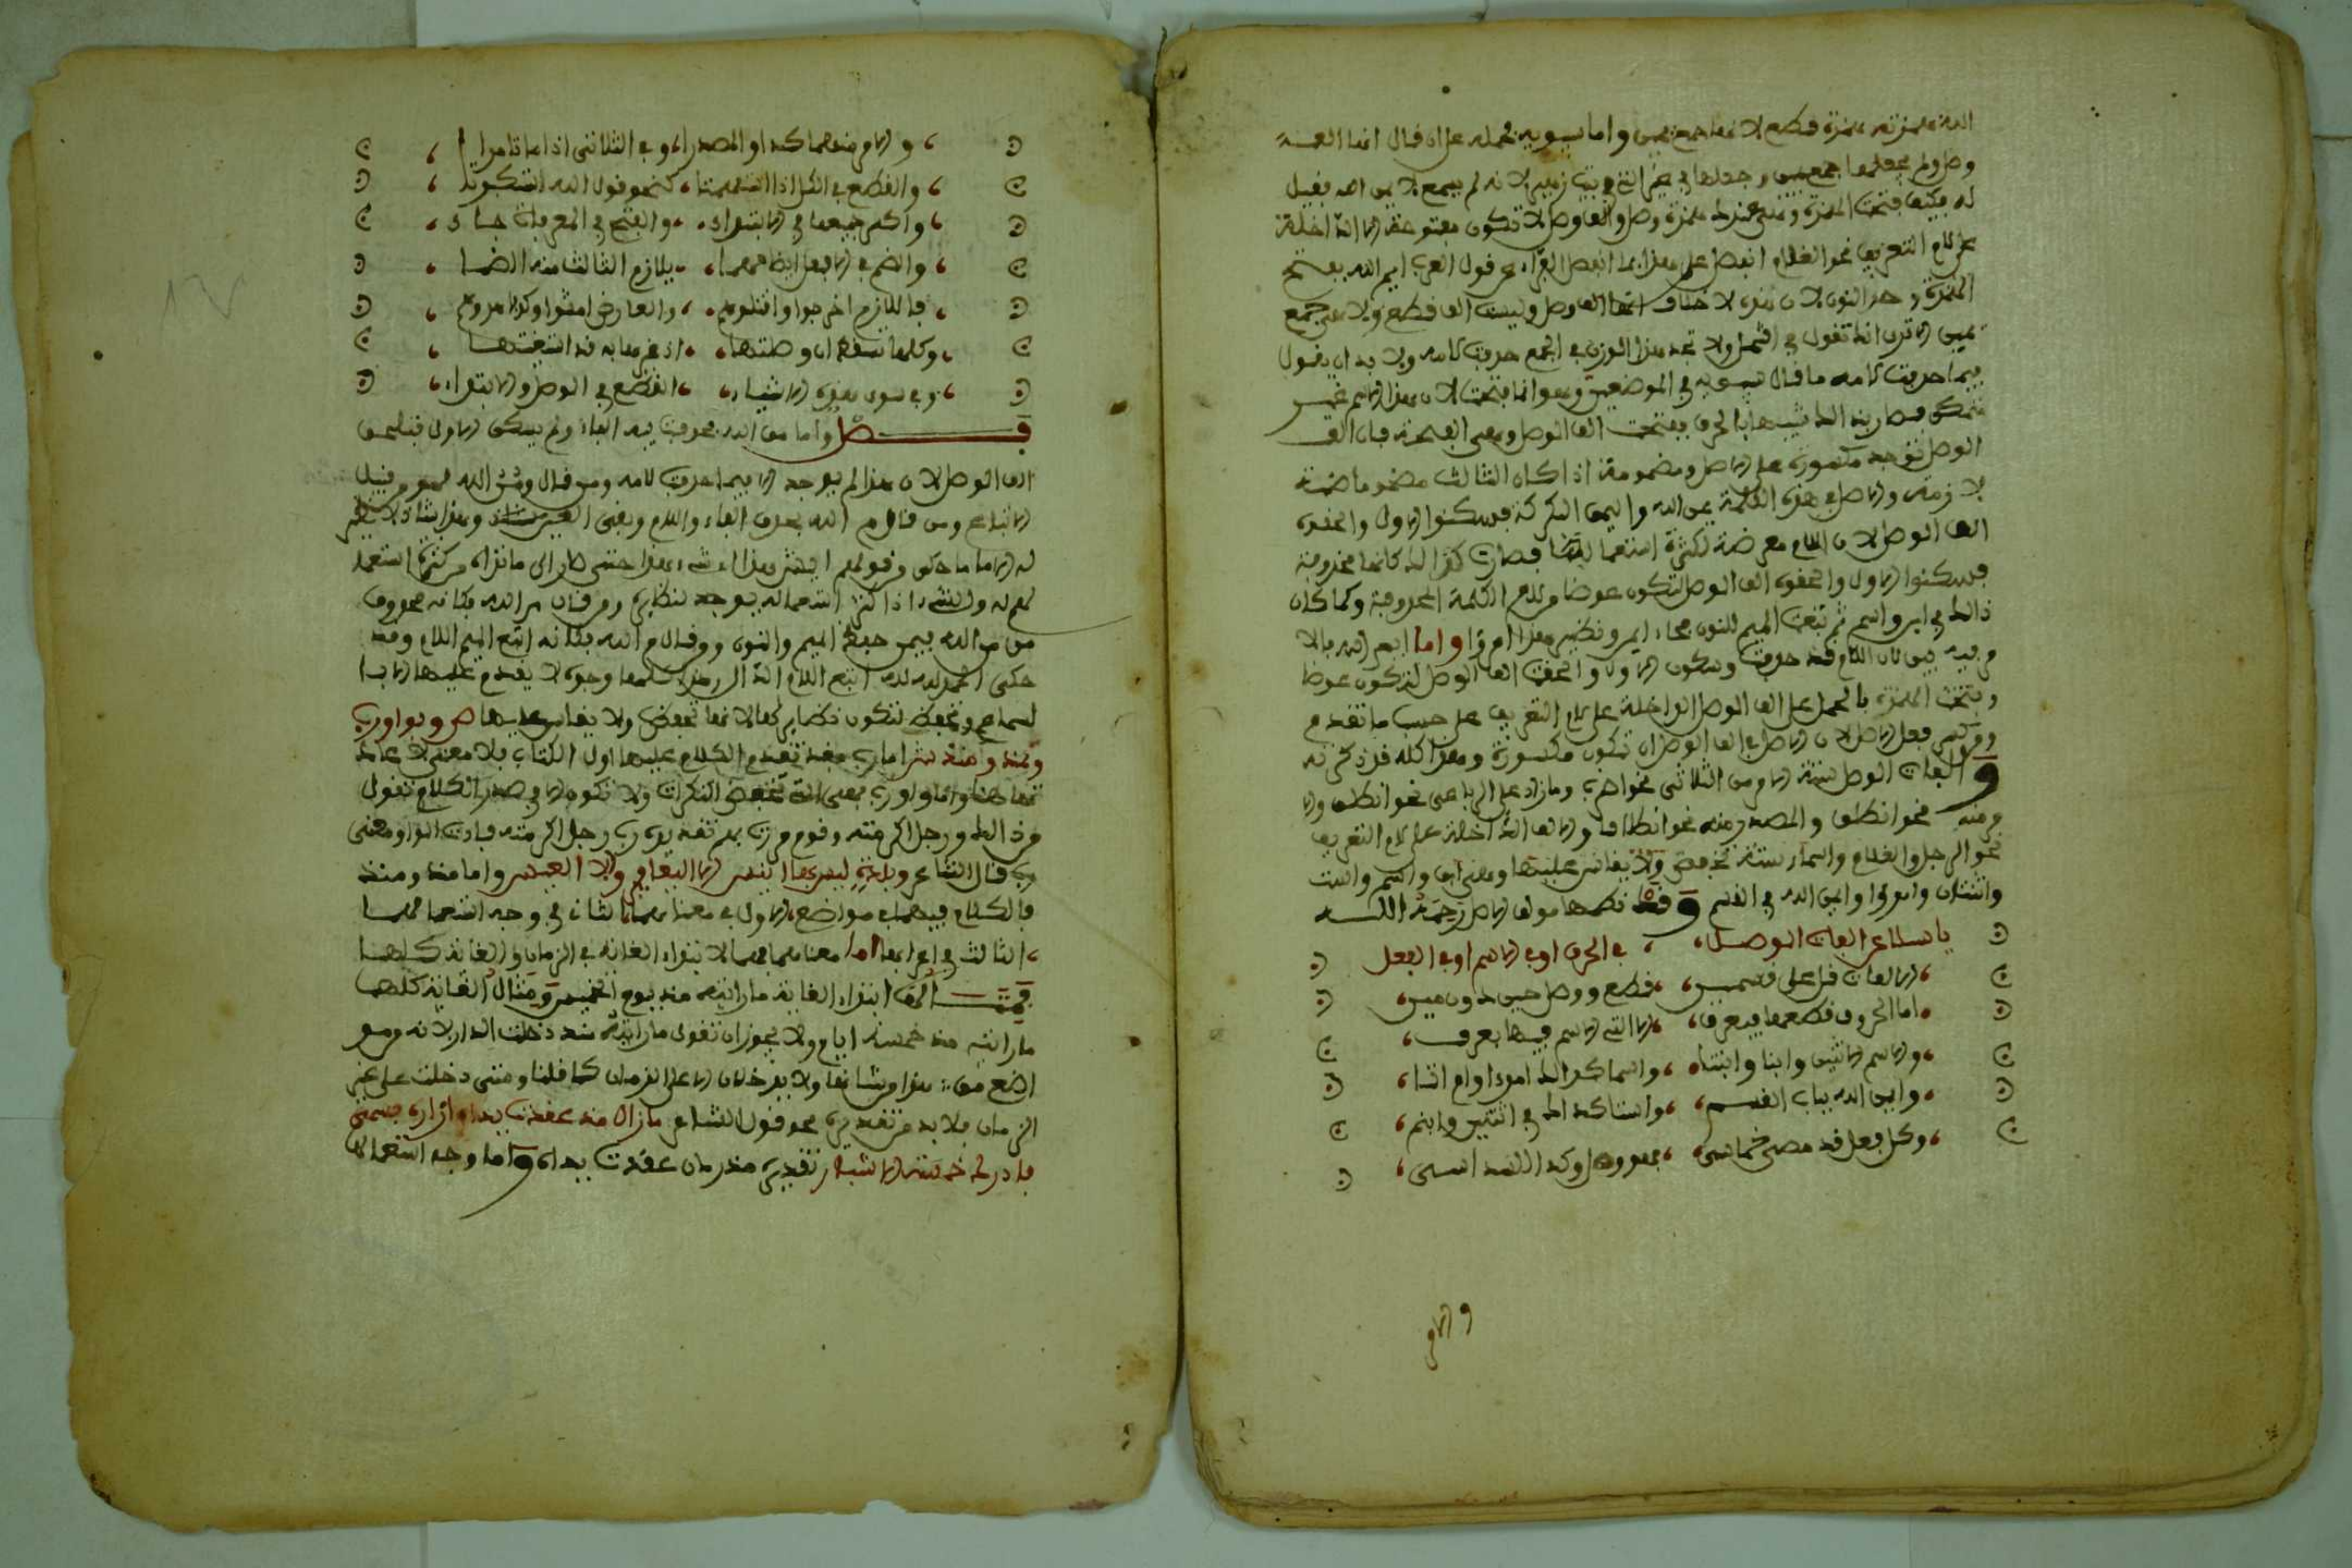 الله همزته همزة قطع لانها جمع يمين واما سيبويه فحمله على ان قال انها الف
وصل ولم يجعلها جمع يمين وجعلها لانه لم يسمع لا يمن الله فقيل
له فكيف فتحت الهمزة وهي عندك همزة وصل والف الوصل لا تكون مفتوحة الا الداخلة
على لام التعريف نحو الغلام انفصل عن هذا بما انفصل الفراء عن قول العرب ايم الله بفتح
الهمزة وحذف النون لان هذه لا خلاف انها الف وصل وليست الف قطع ولا هي جمع
يمين الا ترى انك تقول في ولا تجد هذا الوزن في الجمع حذفت لامه ولا بد ان يقول
فيما حذفت لامه ما قال سيبويه في الموضعين وهو انما فتحت لان هذا الاسم غير
متمكن فصار بذلك شبيها بالحرف ففتحت الف الوصل وهي الفتحة فان الف
الوصل توجد مكسورة على الاصل ومضمومة اذا كان الثالث مضموما ضمة
لازمة والاصل في هذه الكلمة يمن الله واليمن البركة فسكنوا الاول والحقوه
الف الوصل لان اللام معرضة لكثرة استعمالها فصارت لذلك كانها محذوفة
فسكنوا الاول والحقوه الف الوصل لتكون عوضا من لام الكلمة المحذوفة وكما كان
ذلك في ابن واسم ثم تبعت الميم للنون فجاء ايمن ونظير هذا امرؤ واما ايم الله بالا
فيه بين لان اللام قد حذفت وسكون الاول والحقت الف الوصل لتكون عوضا
وفتحت الهمزة بالحمل على الف الوصل الداخلة على لام التعريف على حسب ما تقدم
ومن كسر فعل الاصل لان الاصل في الف الوصل ان تكون مكسورة وهذا كله قد ذكرته
والفات الوصل ستة الامر من الثلاثي نحو اضرب وما زاد على الرباعي نحو انطلق والا
مر منه نحو انطلق والمصدر منه نحو انطلاقا والالف الداخلة على لام التعريف
نحو الرجل والغلام واسماء ستة تحفظ ولا يقاس عليها وهي ابن واسم واست
واثنتان وامرؤ وايمن الله في القسم وقد نظمها مؤلف الاصل رحمة الله
يا سائلا عن الفات الوصل، في الحرف او في الاسم او في الفعل
الالفات قل على قسمين، قطع ووصل حين دون مين،
اما الحروف قطعها قد عرف، الا التي الاسم فيها يعرف،
والاسم الاثنين وابنا وابنتا، واسما كذلك امرءا وامراتا،
وايمن الله بباب القسم، واستا كذلك في اثنين وابنم،
وكل فعل قد مضى خماسي، فهو وصل وكذا السداسي،
والامر
والامر منهما كذا والمصدر، وفي الثلاثي اذا ما تامر
والقطع في الكل اذا استفهمتا، كنحو قول الله استكبرتا
واكسر جميعها في الابتداء، والفتح في المعرفات جاء،
والضم في الافعال ايضا مهما، يلازم الثالث منه الضما
فاللازم اخرجوا واقتلوهم، والعارض امشوا
وكلها تسقط ان وصلتها، اذ غيرها به قد استغنتها
وفي سوى هذه الاشياء، القطع في الوصل والابتداء،
فصل واما من الله فحذفت فيه الفاء ولم يسكن الاول فيلحق
الف الوصل لان هذا لم يوجد الا فيما حذفت لامه ومن قال ومن الله فهو من قبيل
الاتباع ومن قال م الله بحذف الفاء واللام وبقي العين شاذ وهذا شاذ لا نظير
له الا ما حكي من قولهم ايش هذا اي شيء هذا حتى صار الى ما تراه من كثرة استعما
لهم له والشيء اذا كثر استعماله يوجد لنظائره ومن قال من الله فكانه محذوف
من من الله فيمن حذف الميم والنون ومن قال م الله فكانه اتبع الميم اللام وقد
حكي الحمد لله لله اتبع اللام الدال فهذه كلها وجوه لا يقدم عليها الا با
لسماع وتحفظ لتكون نظائر لها لانها تحفظ ولا يقاس عليها ص وبواو رب
ومذ ومنذ ش اما رب فقد تقدم الكلام عليها اول الكتاب فلا معنى لاعاد
تها هنا واما واو رب فهي التي تخفض النكرات ولا تكون الا في صدر الكلام تقول
من ذلك ورجل اكرمته وقوم مررت بهم تقديره رب رجل اكرمته فنابت الواو عن
رب قال الشاعر وبلدة ليس بها انيس الا اليعافير والا العيس واما مذ ومنذ
فالكلام فيهما في مواضع، الاول في معناهما الثاني في وجه استعمالهما
، الثالث في اعرابها اما معناهما فهما لابتداء الغاية في الزمان او الغاية كلها
فمثال ابتداء الغاية ما رايته منذ يوم الخميس ومثال الغاية كلها
ما رايته منذ خمسة ايام ولا يجوز ان تقول ما رايته منذ دخلت الدار لانه موضع
ولا يدخلان الا على الزمان كما قلنا ومتى دخلت على غير
الزمان فلا بد من تقديره نحو قول الشاعر ما زال مذ عقدت يداه ازاره فسمى
فادرك خمسة الاشبار تقديره منذ زمان عقدت يداه واما وجه استعمالها